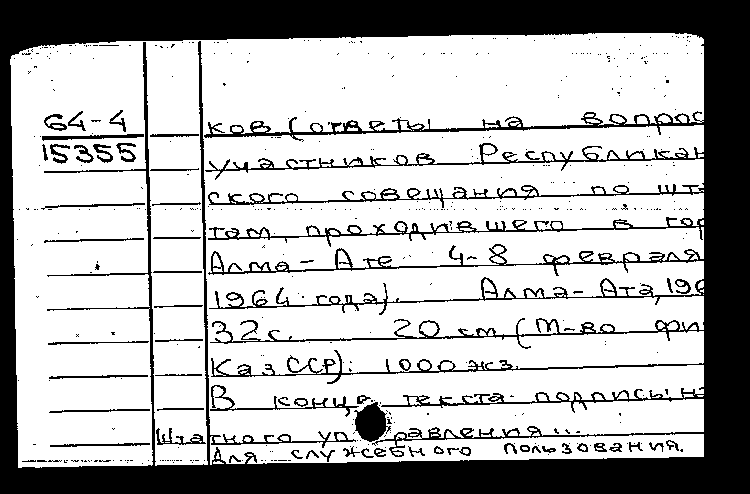 64-4
15355
ков (ответы на вопрос
участников Республикан
ского совещания по шта
там, проходившего в гор
Алма-Ате 4-8 февраля
1964 года). Алма-Ата, 196
32 с. 20 см. (М-во фи
КазССР): 1000 экз.
В конце текста подпись: на
Штатного управления...
Для служебного пользования.